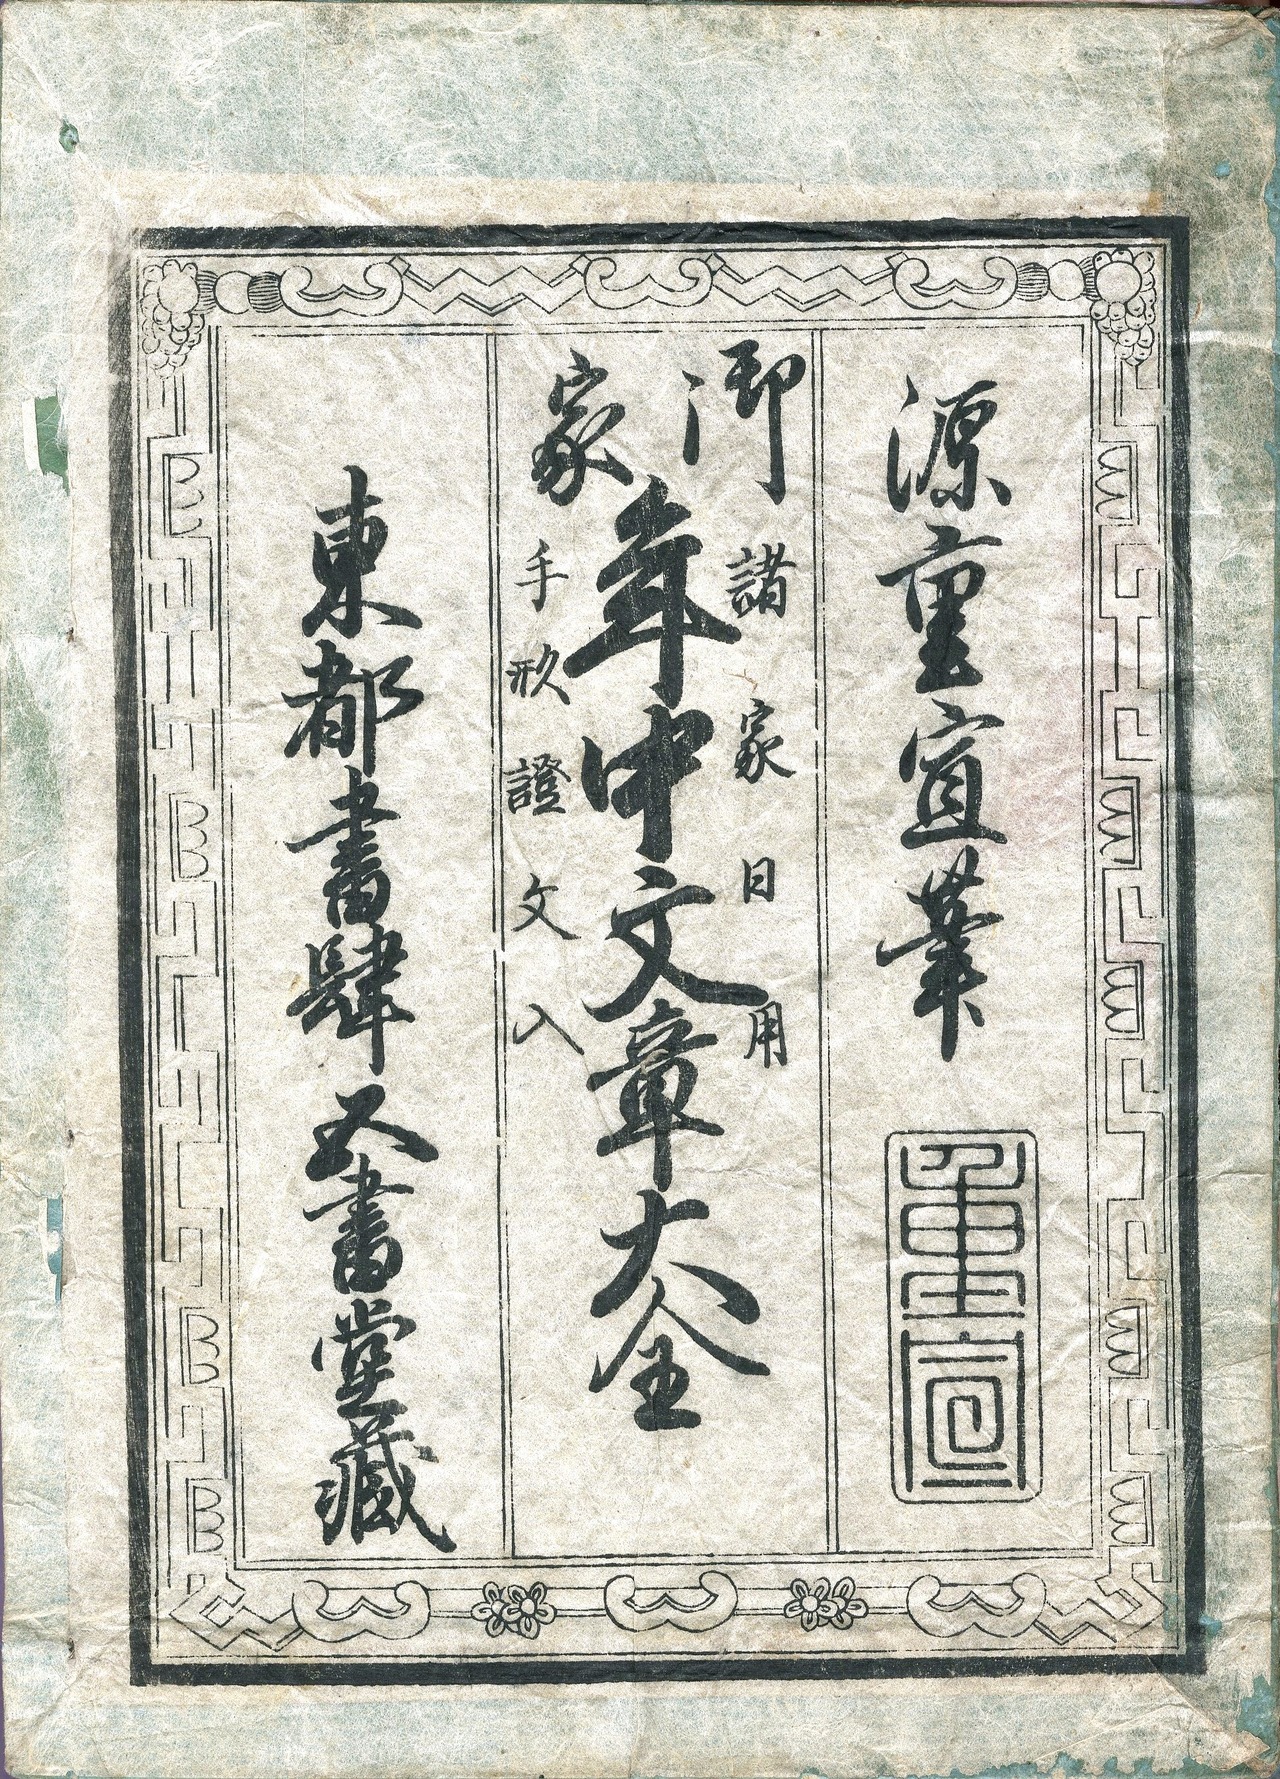 源重宣筆
重宣
御家
諸家日用
年中文章大全
手形證文入
東都書肆 五書堂藏